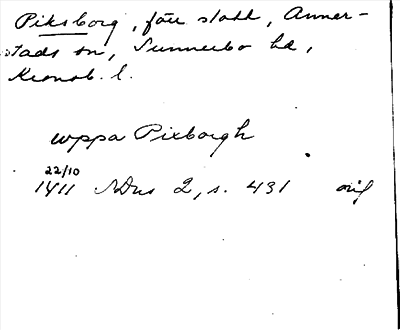 Piksborg, förr slott, Anner-
stads sn, Sunnerbo hd,
Kronob. l.
wppa Pixborgh
22/10
1411 SDns 2, s. 431 orig